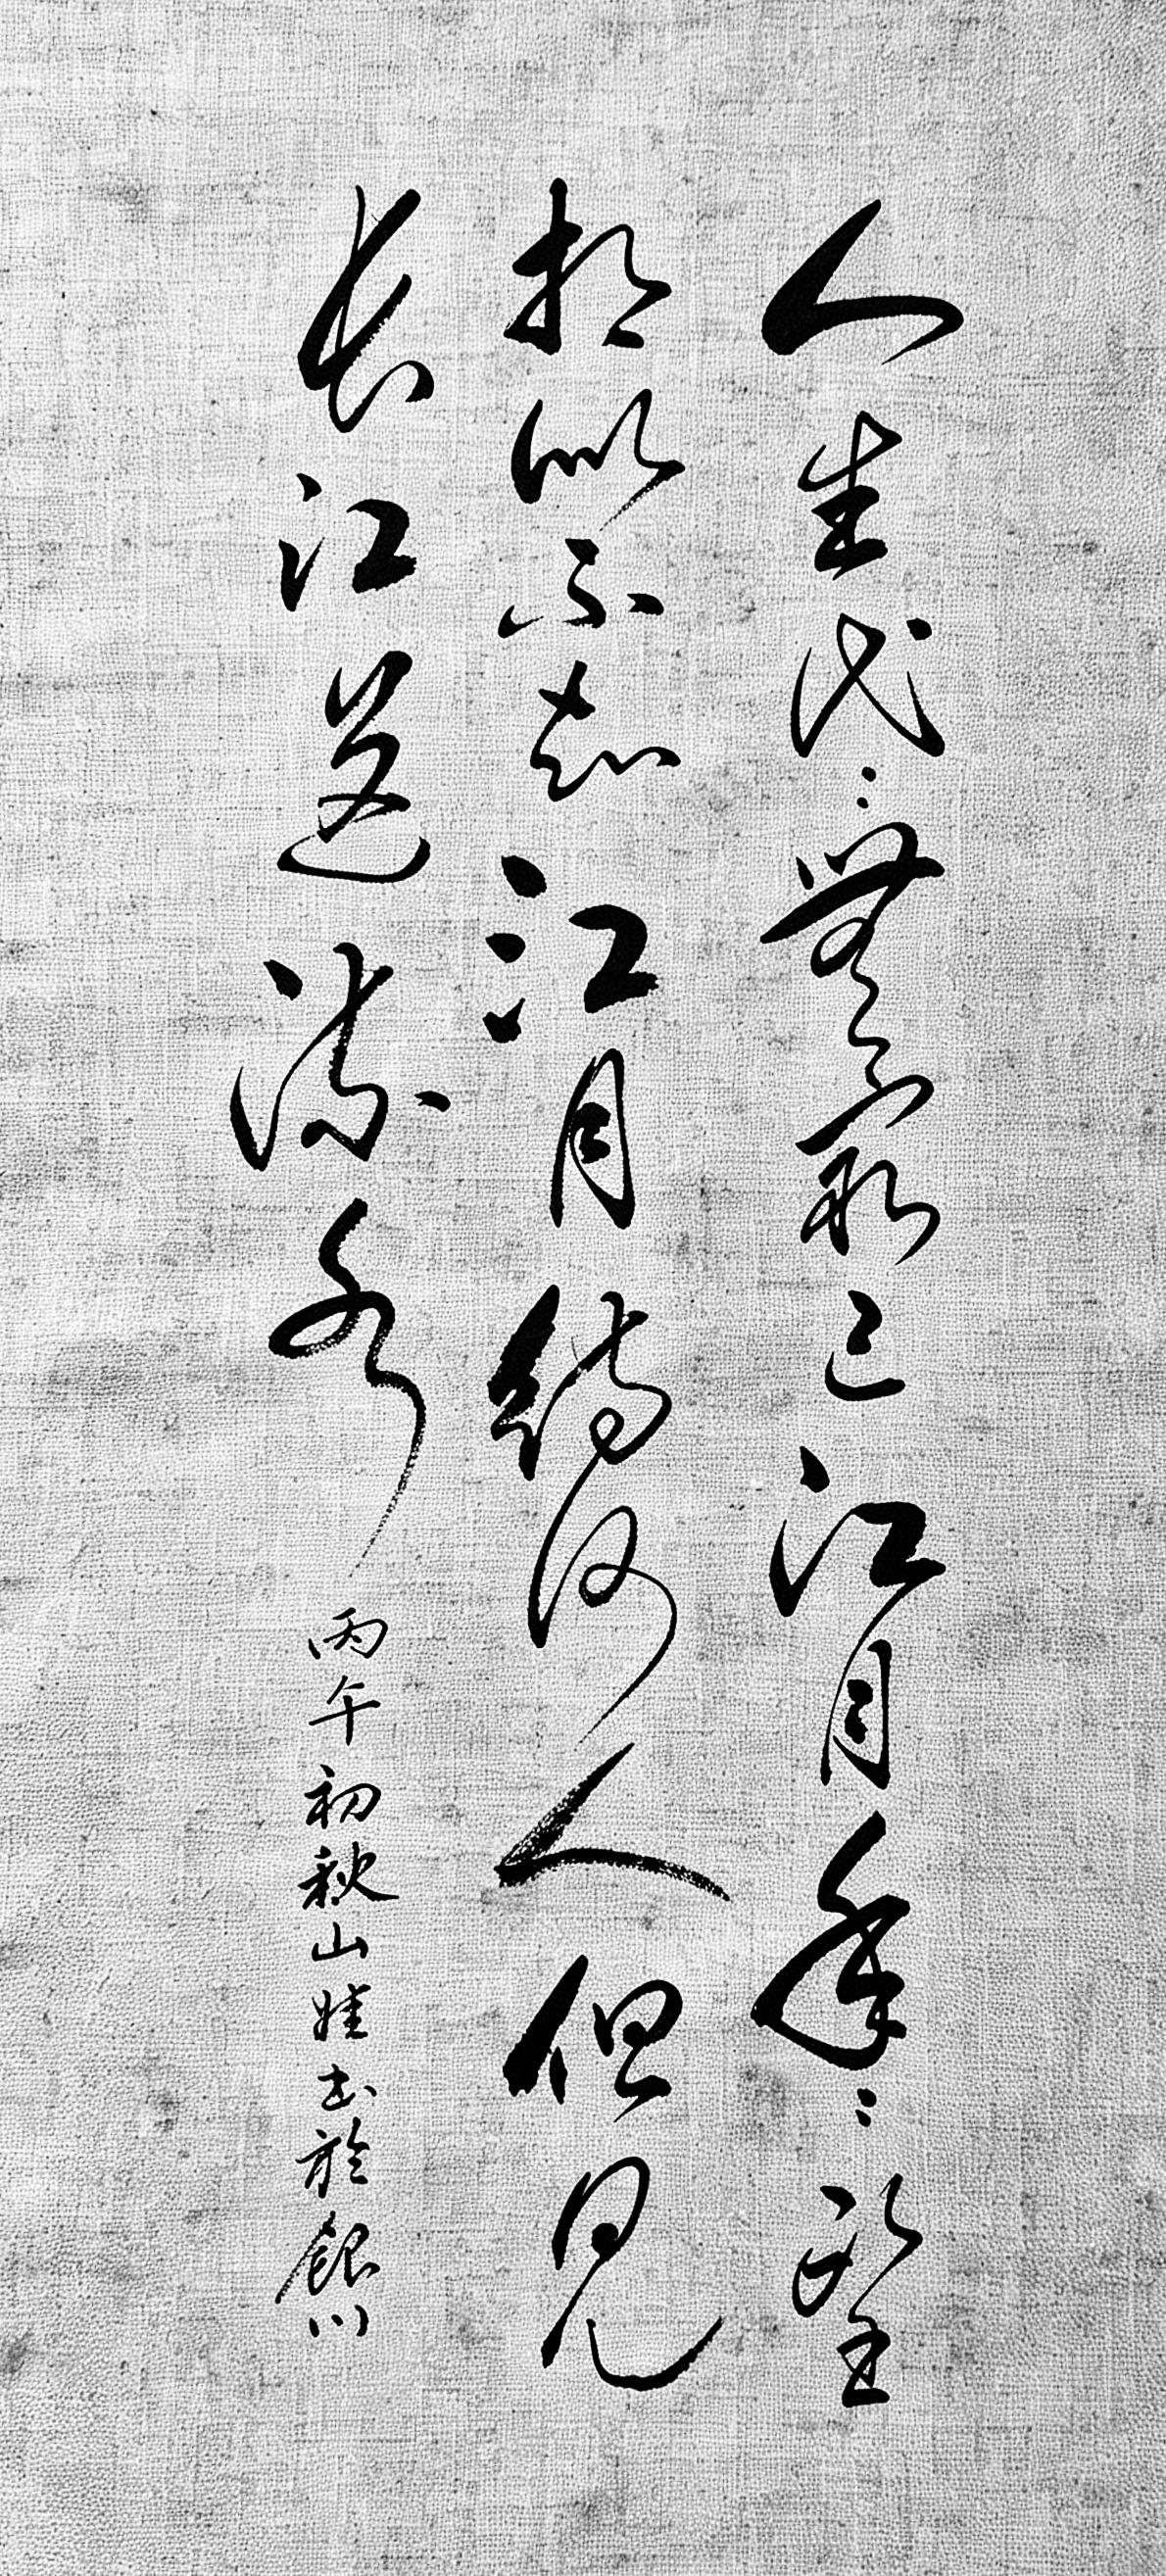 人生代〻無窮已江月年〻望
相似不知江月待何人但見
長江送流水
丙午初秋山娃书於銀川